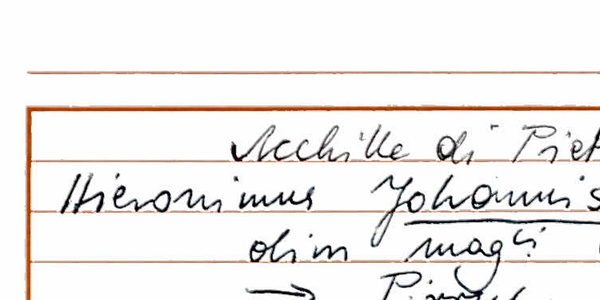 Achille di Piet
Hieronimus Johannis
olim magli
→